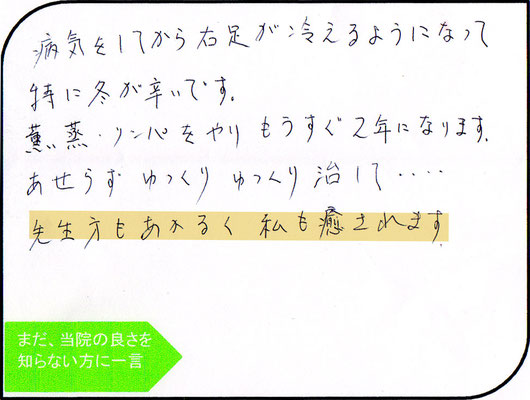 病気をしてから右足が冷えるようになって
特に冬が辛いです。
薫蒸・リンパをやり もうすぐ2年になります。
あせらず ゆっくり ゆっくり 治して・・・・
先生方もあかるく 私も癒されます。
まだ、当院の良さを
知らない方に一言